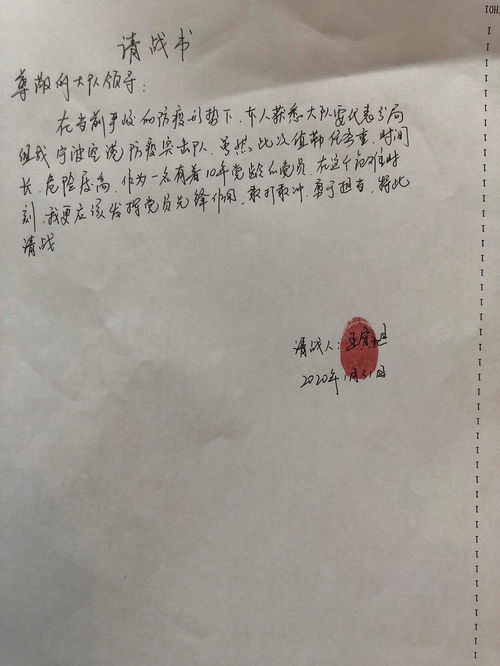 请战书
尊敬的大队领导：
在当前严峻的防疫形势下，本人获悉大队需代表分局
组成宁波空港防疫突击队，虽然，此次值勤任务重，时间
长，危险度高，作为一名有着10年党龄的党员，在这个艰难时
刻，我更应该发挥党员先锋作用，敢打敢冲，勇于担当，特此
请战
请战人：王
2020年1月31日